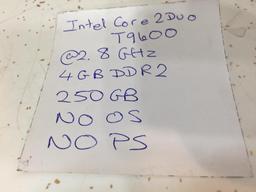 Intel Core 2 Duo
T9600
@2.8 GHz
4 GB DDR2
250 GB
NO OS
NO PS